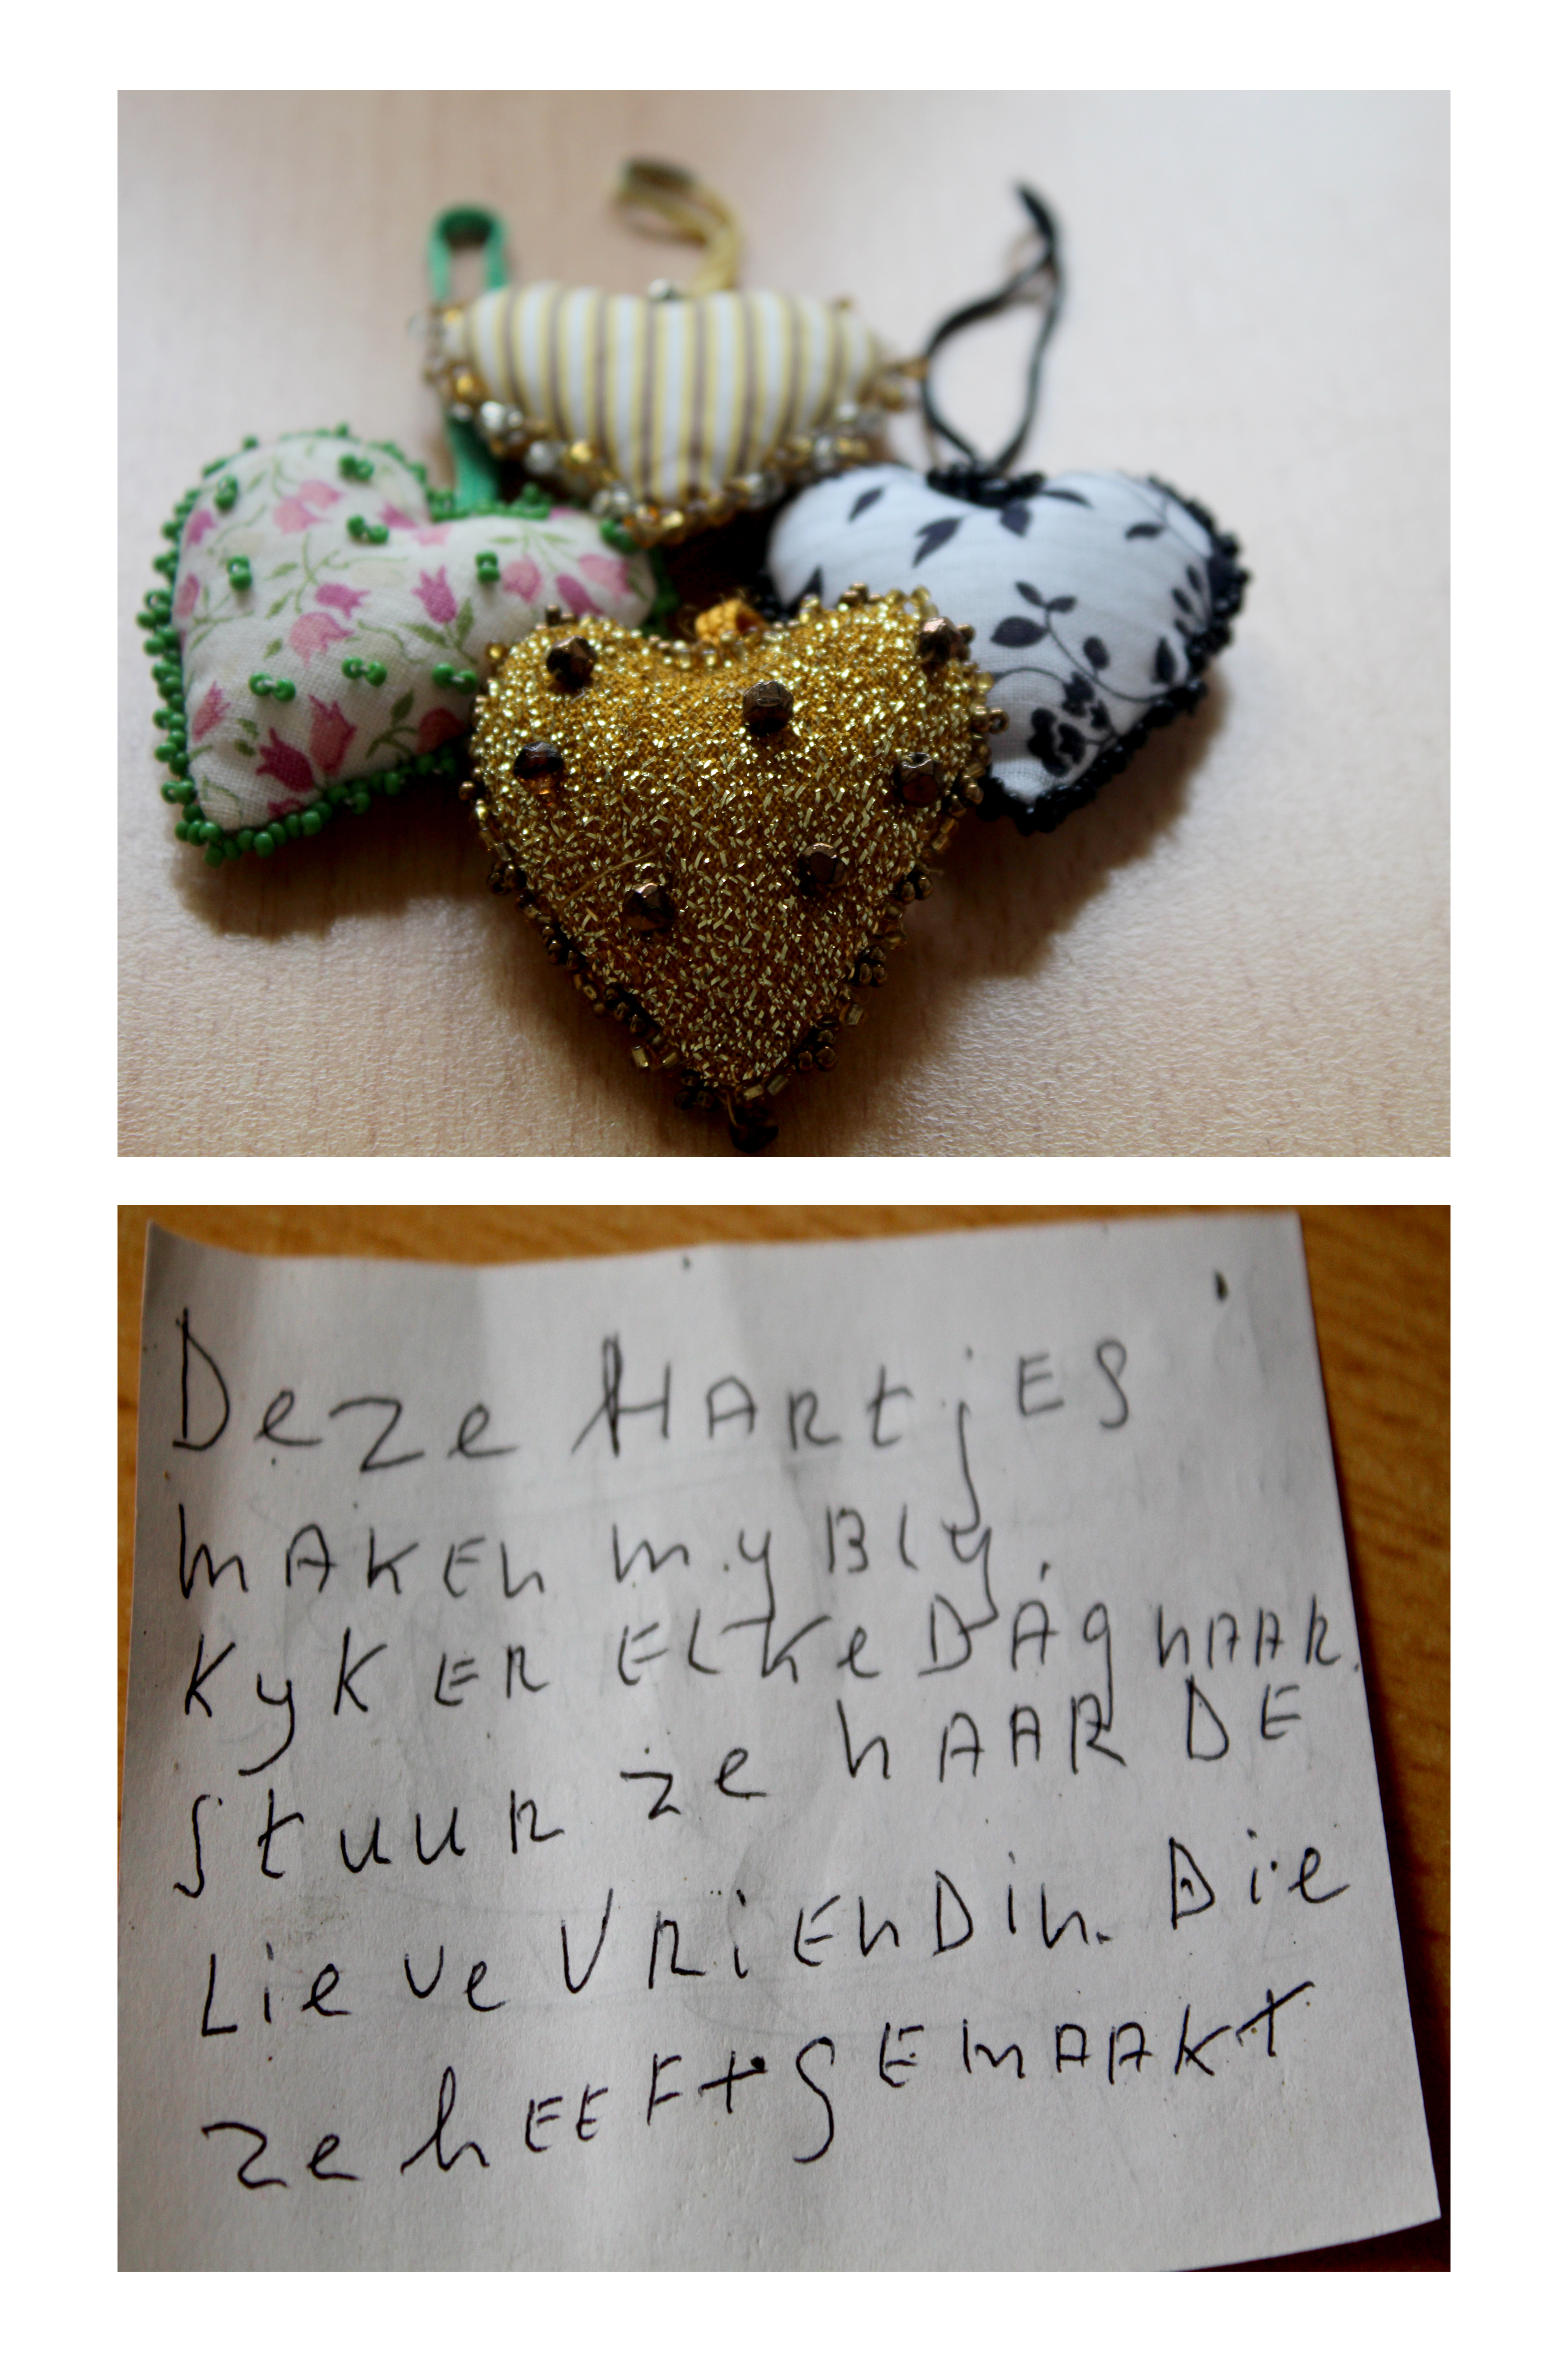 Deze HARtjES
mAKEn my Bly.
KyK ER ELKe DAg nAAR.
StuuR ze nAAR DE
Lieve VRiEnDin. Die
ze hEEFt gEmAAKt